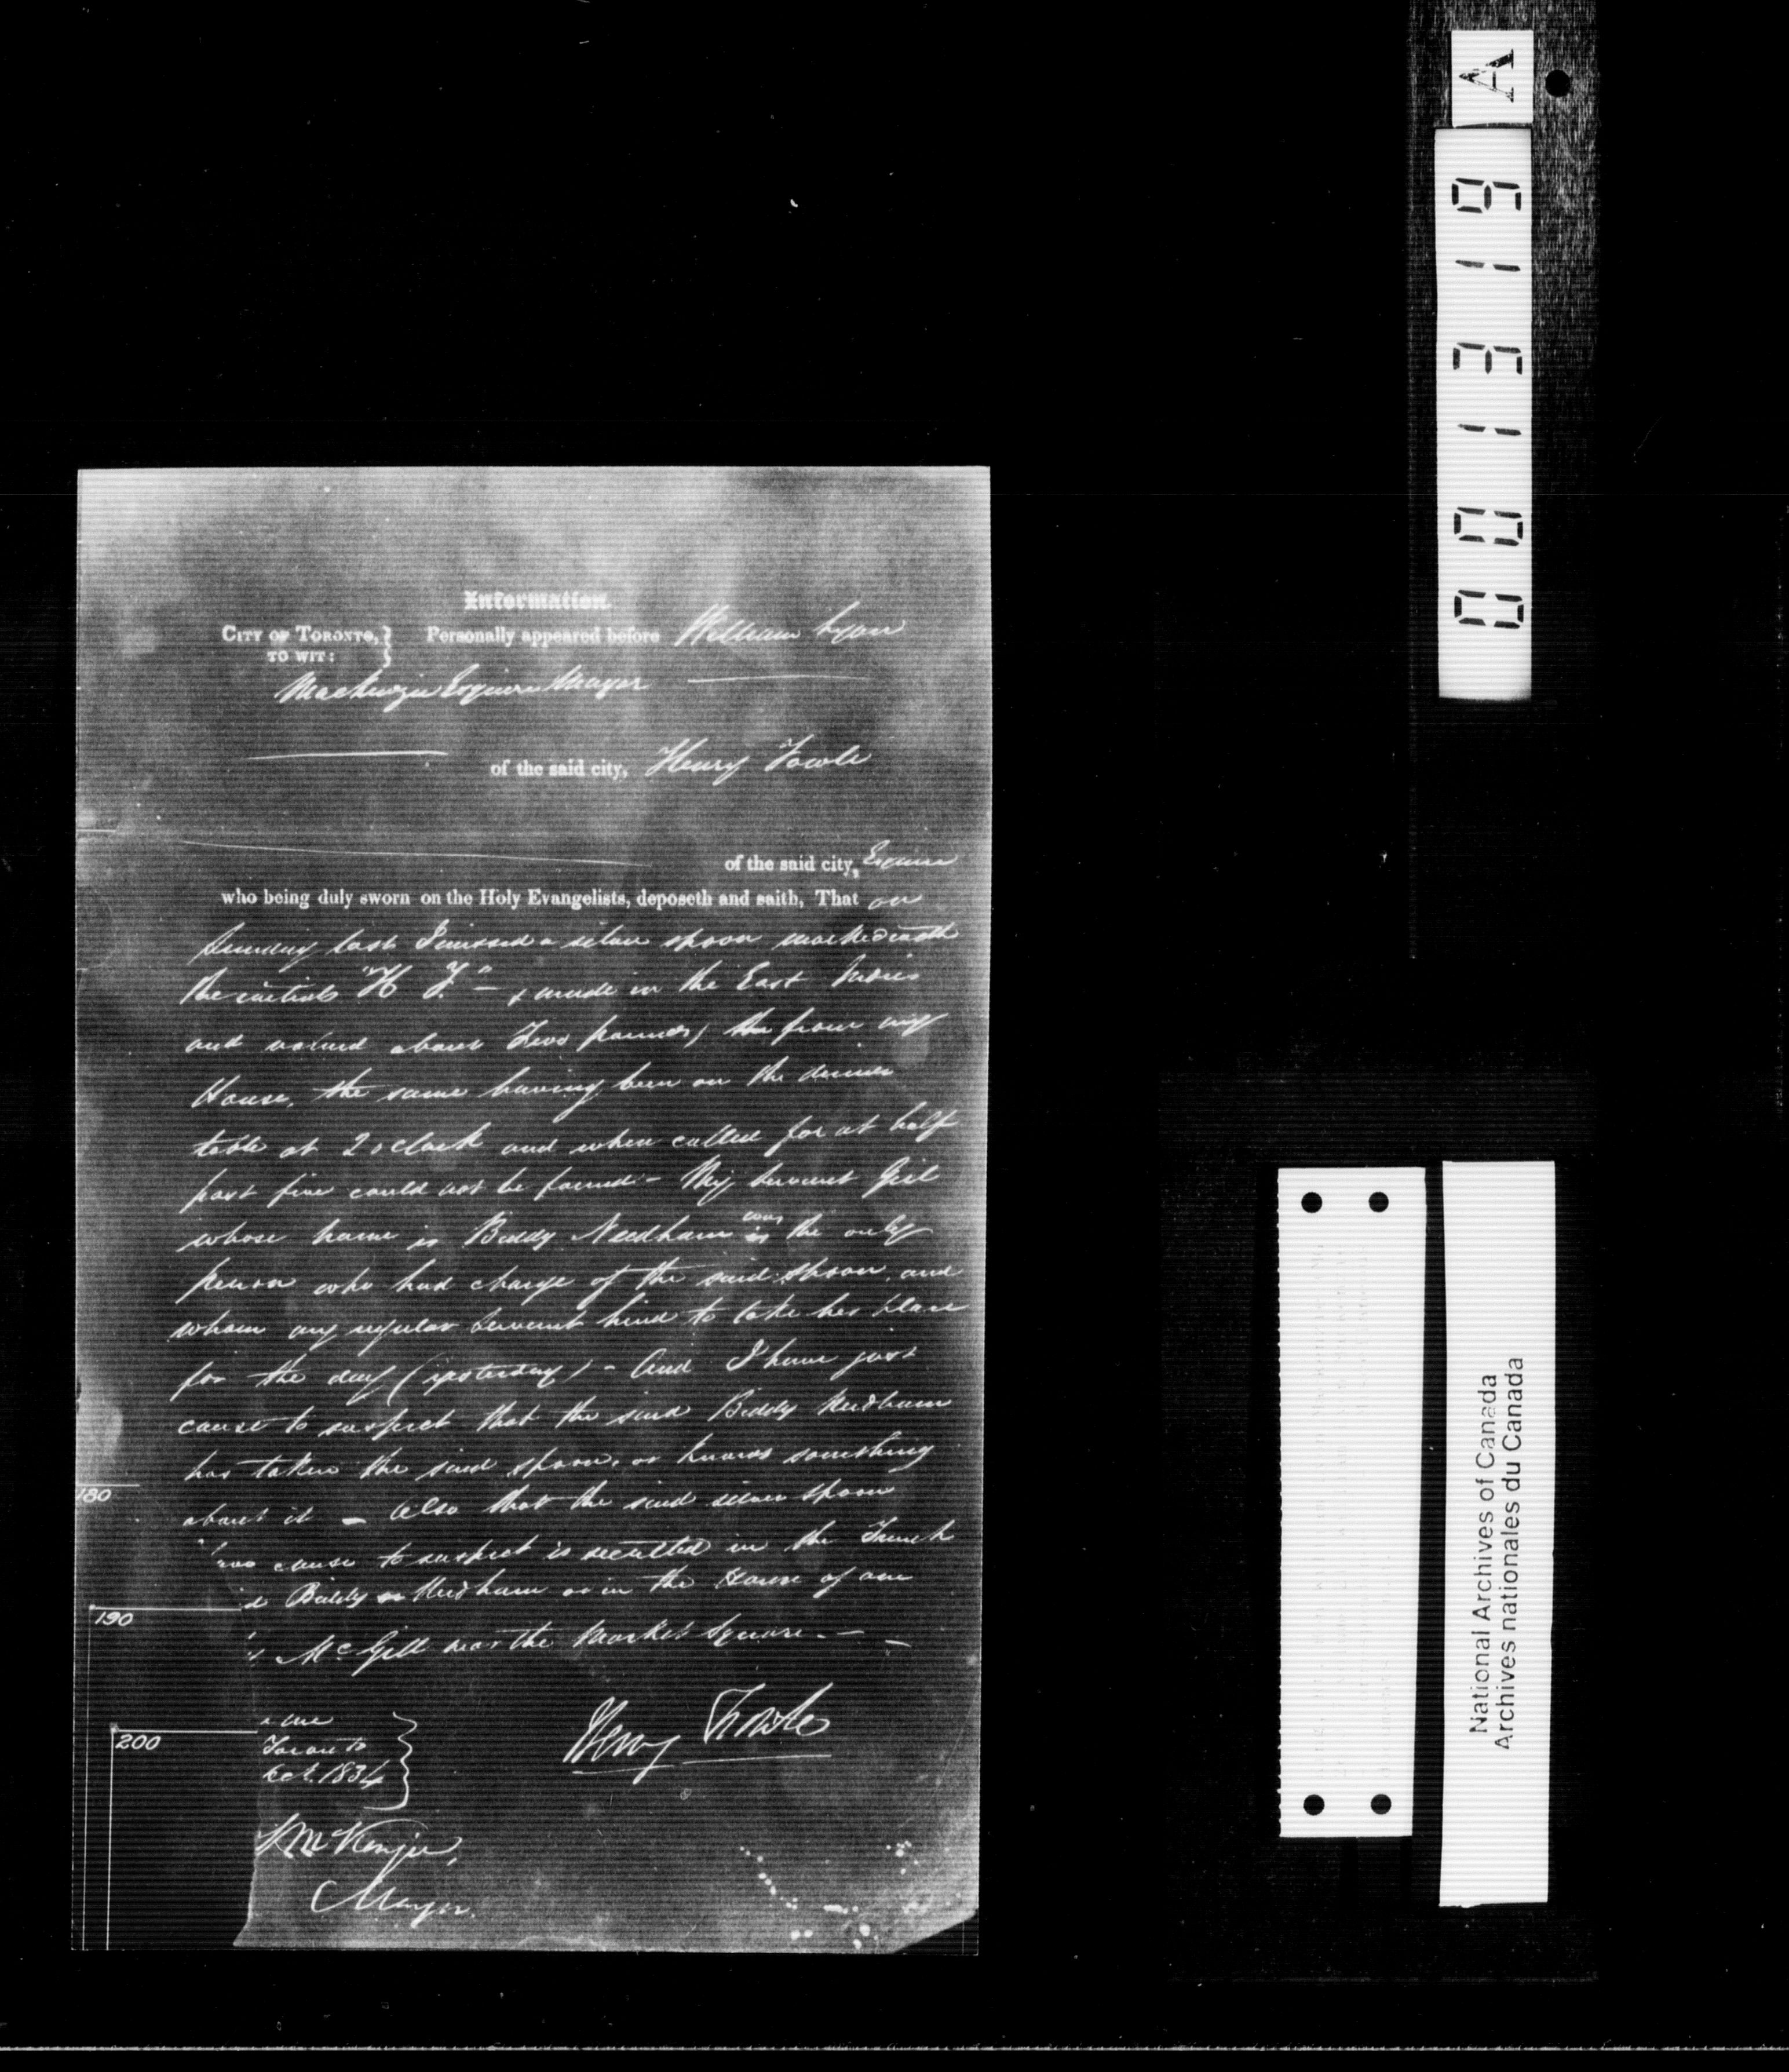 Information.
CITY OF TORONTO, } Personally appeared before William Lyon
TO WIT:
Mackenzie Esquire Mayor
of the said city, Henry Fowle
of the said city, Esquire
who being duly sworn on the Holy Evangelists, deposeth and saith, That on
Sunday last I missed a silver spoon marked with
the initials "H F." – & made in the East Indies
and valued about Two pounds, from my
House, the same having been on the dinner
table at 2 o clock and when called for at half
past five could not be found – My Servant Girl
whose name is Biddy Needham was the only
person who had charge of the said spoon, and
whom my regular Servant hired to take her place
for the day (yesterday) – And I have just
cause to suspect that the said Biddy Needham
has taken the said spoon, or knows something
about it – Also that the said silver spoon
cause to suspect is secretted in the Trunk
Biddy Needham or in the House of one
McGill near the Market Square. – –
me
Toronto
1834
Henry Fowle
McKenzie,
Mayor.
180
190
200
A
001319
National Archives of Canada
Archives nationales du Canada